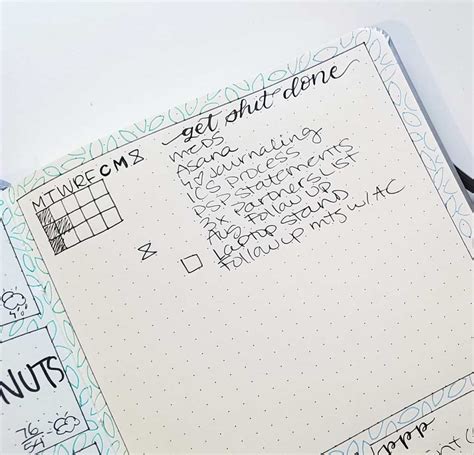 get shit done
MTWRF CM8
meds
Asana
Journaling
ICS process
PSP statements
3x Partners List
Aug Follow up
8 Laptop stand
Followup mts w/ AC
NUTS
76
54
ppp